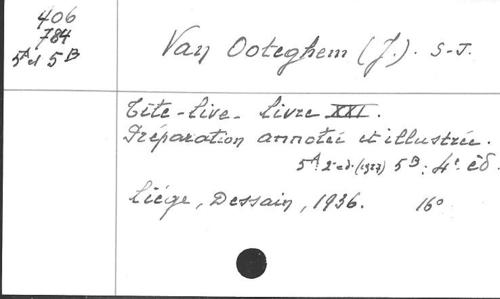 406
784
5A et 5B
Van Ooteghem (J.). S-J.
Tite-Live. Livre XXI.
Préparation annotée et illustrée.
5A: 2e ed. (1927) 5B: 4e éd.
Liége, Dessain, 1936. 16°